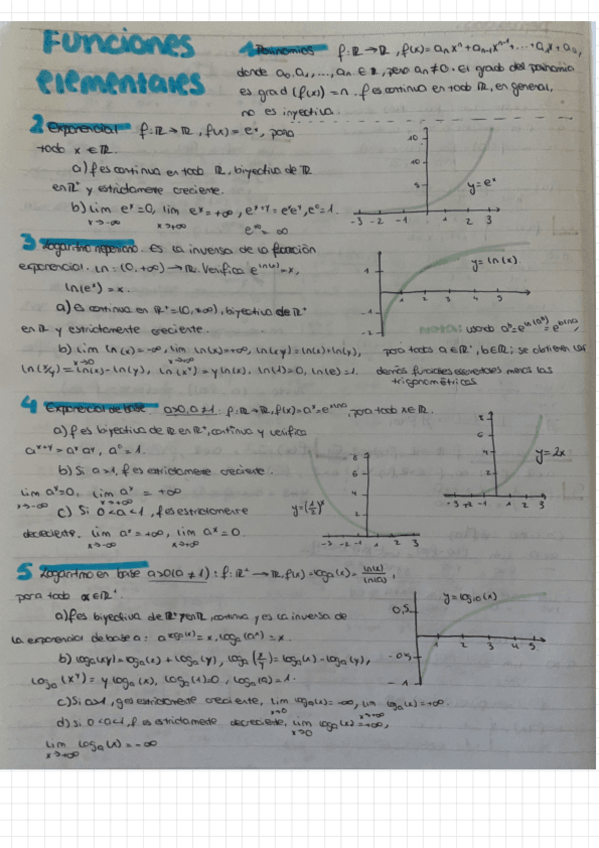 Funciones
elementales
1 Polinomios f: ℝ → ℝ, f(x) = aₙxⁿ + aₙ₋₁xⁿ⁻¹ + ... + a₁x + a₀,
donde a₀, a₁, ..., aₙ ∈ ℝ, pero aₙ ≠ 0. El grado del polinomio
es grad (f(x)) = n. f es continua en todo ℝ, en general,
no es inyectiva.
2 Exponencial f: ℝ → ℝ, f(x) = eˣ, para
todo x ∈ ℝ.
a) f es continua en todo ℝ, biyectiva de ℝ
en ℝ⁺ y estrictamente creciente.
b) lim eˣ = 0, lim eˣ = +∞, eˣ⁺ʸ = eˣeʸ, e⁰ = 1.
x→-∞ x→+∞ e^∞ = ∞
10
10
5
y = eˣ
-3 -2 -1 1 2 3
3 Logaritmo neperiano. Es la inversa de la función
exponencial. ln: (0, +∞) → ℝ. Verifica e^ln(x) = x,
ln(eˣ) = x.
a) es continua en ℝ⁺ = (0, +∞), biyectiva de ℝ⁺
en ℝ y estrictamente creciente.
b) lim ln(x) = -∞, lim ln(x) = +∞, ln(xy) = ln(x) + ln(y),
x→0 x→+∞
ln(x/y) = ln(x) - ln(y), ln(xʸ) = y ln(x). ln(1) = 0, ln(e) = 1.
y = ln(x)
1
-1
-2
1 2 3 4 5
usando aᵇ = e^ln(aᵇ) = e^b ln a,
para todo a ∈ ℝ⁺, b ∈ ℝ; se obtienen las
demás funciones elementales menos las
trigonométricas
4 Exponencial de base a>0, a≠1: f: ℝ → ℝ, f(x) = aˣ = e^x ln a, para todo x ∈ ℝ.
a) f es biyectiva de ℝ en ℝ⁺, continua y verifica
aˣ⁺ʸ = aˣ aʸ, a⁰ = 1.
b) Si a>1, f es estrictamente creciente.
lim aˣ = 0, lim aˣ = +∞
x→-∞ x→+∞
c) Si 0<a<1, f es estrictamente
decreciente. lim aˣ = +∞, lim aˣ = 0.
x→-∞ x→+∞
8
6
4
2
y = (1/2)ˣ
-3 -2 -1 1 2 3
6
4
2
y = 2x
-3 -2 -1 1 2 3
5 Logaritmo en base a>0 (a ≠ 1): f: ℝ⁺ → ℝ, f(x) = logₐ(x) = ln(x)/ln(a),
para todo x ∈ ℝ⁺.
a) f es biyectiva de ℝ⁺ en ℝ, continua y es la inversa de
la exponencial de base a: a^logₐ(x) = x, logₐ(aˣ) = x.
b) logₐ(xy) = logₐ(x) + logₐ(y), logₐ(x/y) = logₐ(x) - logₐ(y),
logₐ(xʸ) = y logₐ(x), logₐ(1) = 0, logₐ(a) = 1.
c) Si a>1, g es estrictamente creciente, lim logₐ(x) = -∞, lim logₐ(x) = +∞.
x→0 x→+∞
d) Si 0<a<1, f es estrictamente decreciente, lim logₐ(x) = +∞,
x→0
lim logₐ(x) = -∞
x→+∞
y = log₁₀(x)
0,5
-0,5
-1
1 2 3 4 5